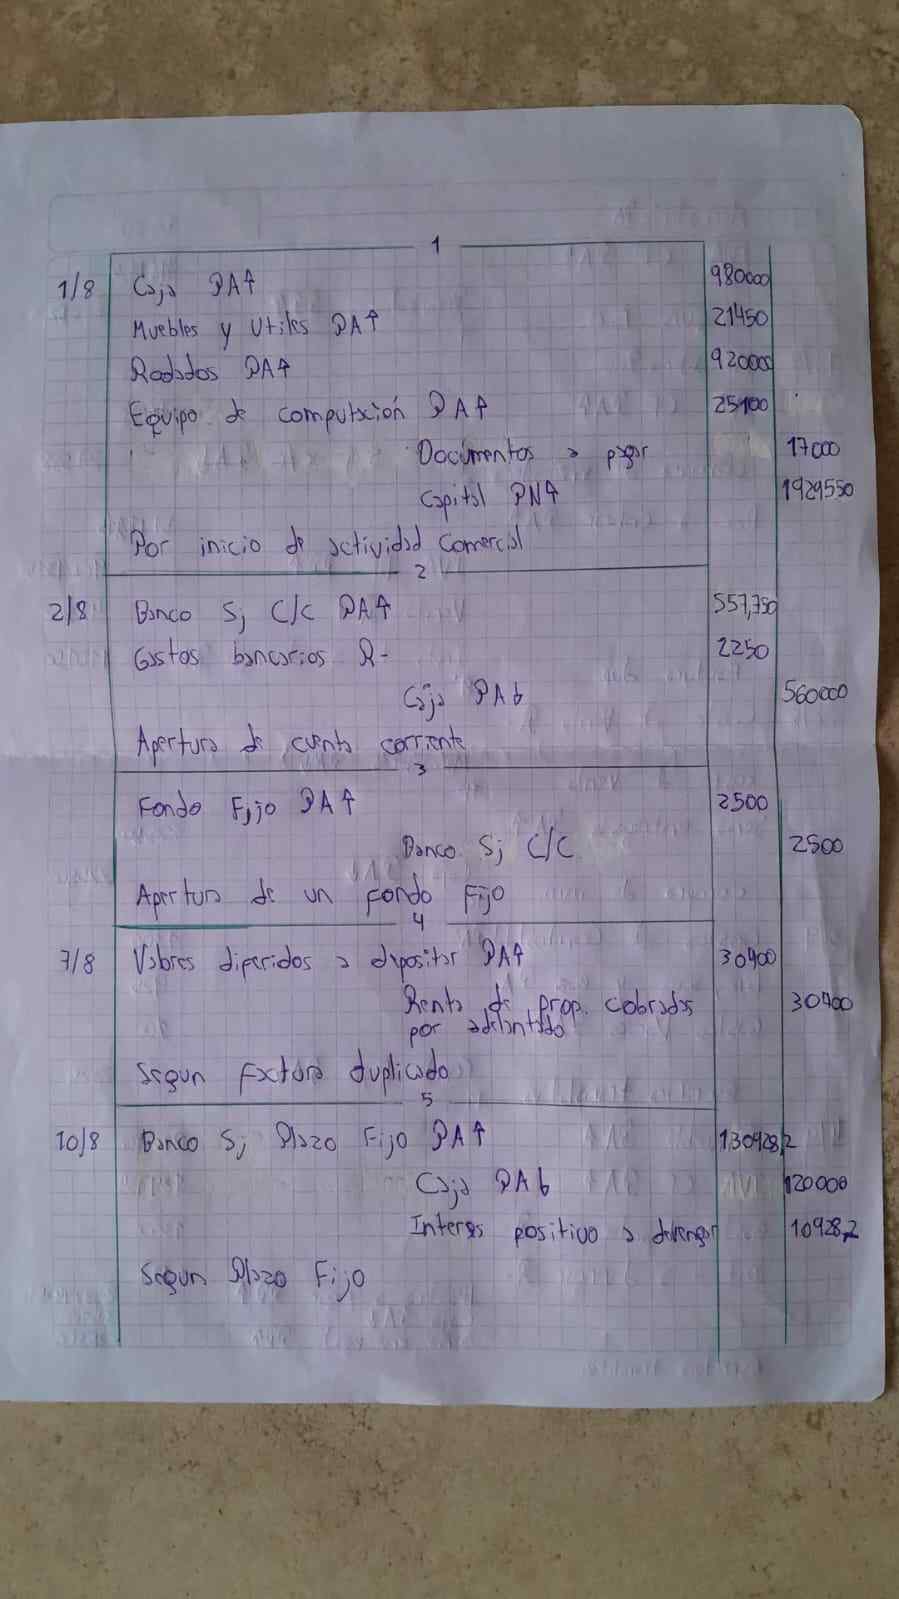 1
1/8 Caja PA↑ 980000
Muebles y Utiles PA↑ 21450
Rodados PA↑ 920000
Equipo de computación PA↑ 25100
Documentos a pagar 17000
Capital PN↑ 1929550
Por inicio de actividad Comercial
2
2/8 Banco Sj C/C PA↑ 557,750
Gastos bancarios R- 2250
Caja PA↓ 560000
Apertura de cuenta corriente
3
Fondo Fijo PA↑ 2500
Banco Sj C/C 2500
Apertura de un fondo Fijo
4
7/8 Valores diferidos a depositar PA↑ 30400
Renta de prop. cobradas 30400
por adelantado
Segun factura duplicado
5
10/8 Banco Sj Plazo Fijo PA↑ 130928,2
Caja PA↓ 120000
Interes positivo a devengar 10928,2
Segun Plazo Fijo